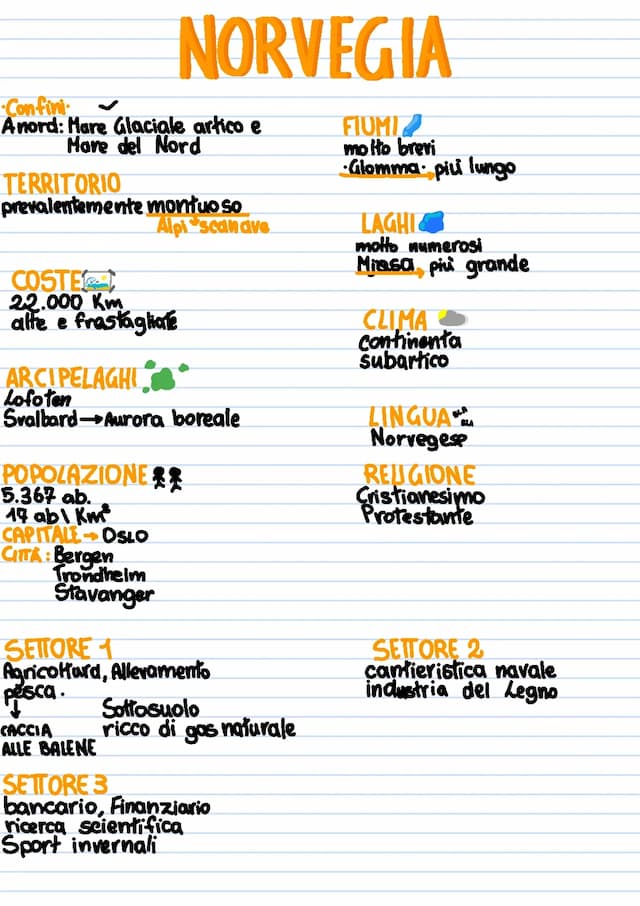 NORVEGIA
·Confini·
A nord: Mare Glaciale artico e
Mare del Nord
TERRITORIO
prevalentemente montuoso
Alpi scanave
COSTE
22.000 Km
alte e frastagliate
ARCIPELAGHI
Lofoten
Svalbard→Aurora boreale
POPOLAZIONE
5.367 ab.
17 ab\Km²
CAPITALE→OSLO
CITTÀ: Bergen
Trondheim
Stavanger
FIUMI
molto brevi
·Glomma· più lungo
LAGHI
molto numerosi
Mjosa, più grande
CLIMA
continenta
subartico
LINGUA
Norvegese
RELIGIONE
Cristianesimo
Protestante
SETTORE 1
Agricoltura, Allevamento
pesca.
↓
CACCIA
ALLE BALENE
Sottosuolo
ricco di gas naturale
SETTORE 2
cantieristica navale
industria del Legno
SETTORE 3
bancario, Finanziario
ricerca scientifica
Sport invernali